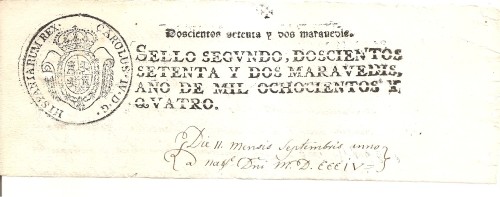 CAROLUS IV D. G.
HISPANIARUM REX
Doscientos setenta y dos marauedis.
SELLO SEGVNDO, DOSCIENTOS
SETENTA Y DOS MARAVEDIS,
AÑO DE MIL OCHOCIENTOS Y
QVATRO.
Die 11 mensis Septembris anno
a natᵉ Dni M. D. CCCIV